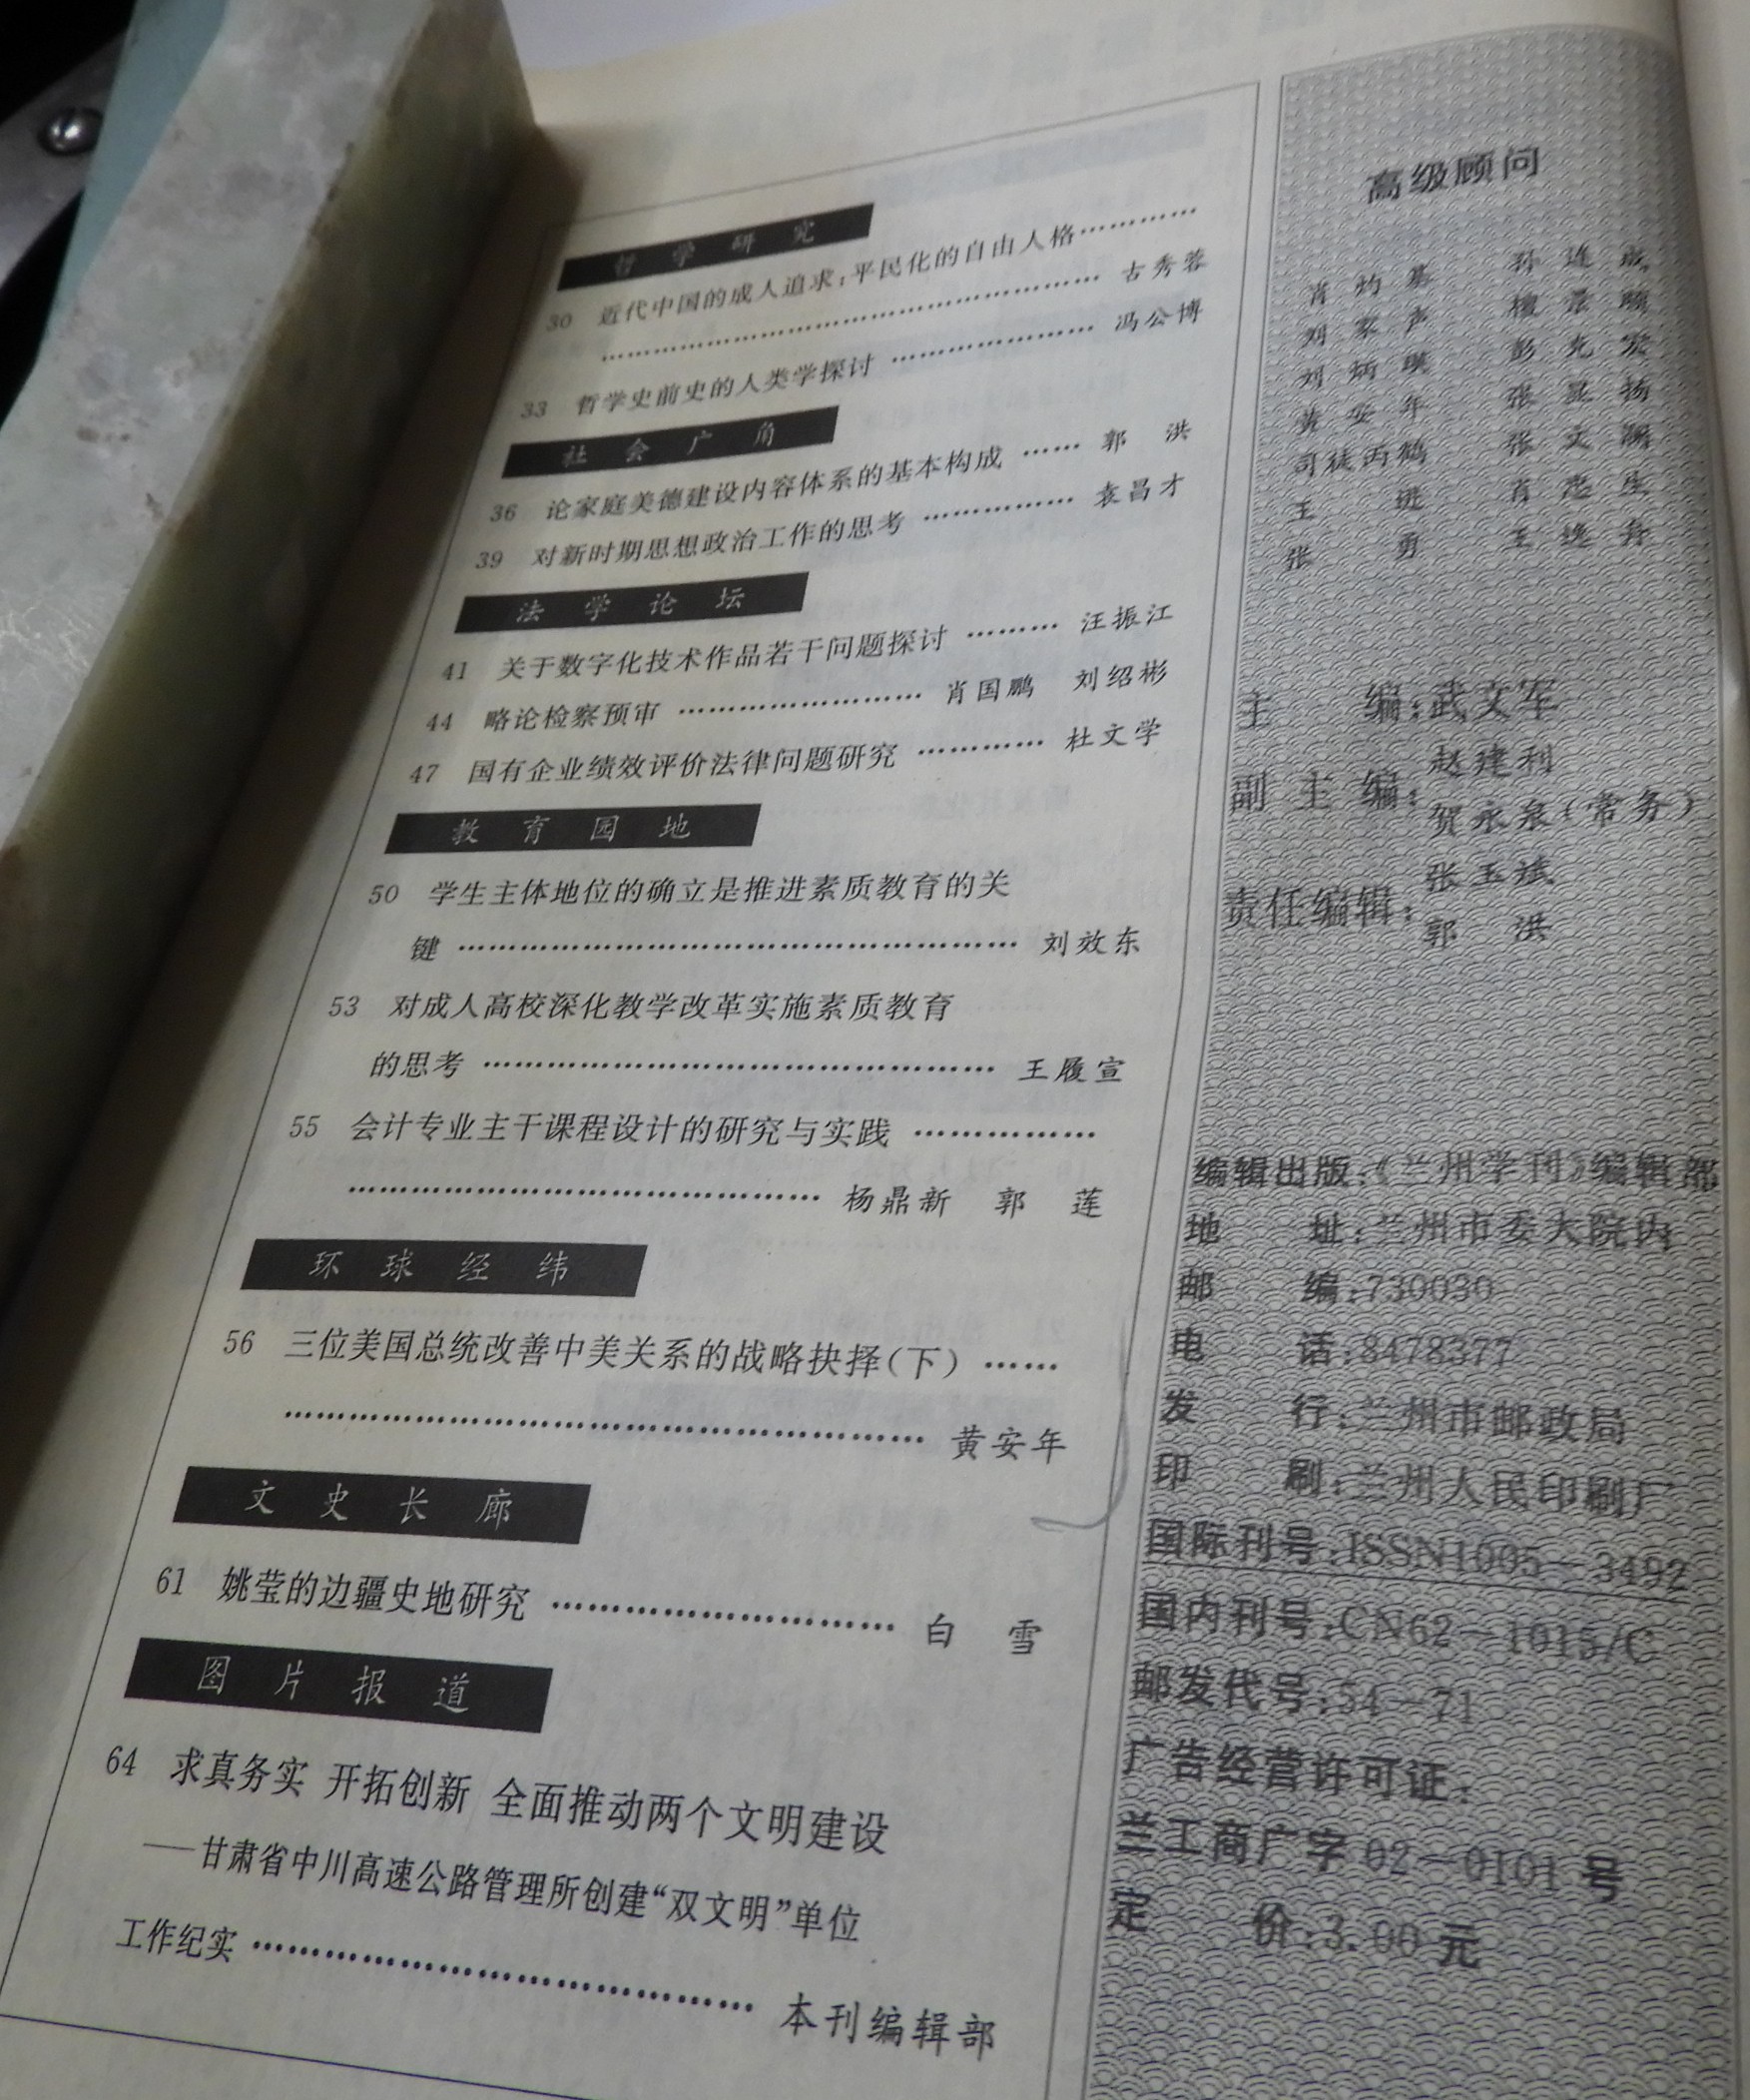 哲学研究
30 近代中国的成人追求:平民化的自由人格…………
………………………………………… 古秀蓉
33 哲学史前史的人类学探讨 ………………… 冯公博
社会广角
36 论家庭美德建设内容体系的基本构成 …… 郭 洪
39 对新时期思想政治工作的思考 …………… 袁昌才
法学论坛
41 关于数字化技术作品若干问题探讨 ……… 汪振江
44 略论检察预审 …………………… 肖国鹏 刘绍彬
47 国有企业绩效评价法律问题研究 ………… 杜文学
教育园地
50 学生主体地位的确立是推进素质教育的关
键 ………………………………………………… 刘效东
53 对成人高校深化教学改革实施素质教育
的思考 …………………………………………… 王履宣
55 会计专业主干课程设计的研究与实践 ………………
………………………………………… 杨鼎新 郭 莲
环球经纬
56 三位美国总统改善中美关系的战略抉择(下) ……
……………………………………………………… 黄安年
文史长廊
61 姚莹的边疆史地研究 ………………………… 白 雪
图片报道
64 求真务实 开拓创新 全面推动两个文明建设
——甘肃省中川高速公路管理所创建“双文明”单位
工作纪实 ……………………………………… 本刊编辑部
高级顾问
肖灼基 孙连成
刘家声
刘炳瑛 彭光宏
黄安年 张显扬
司徒丙鹤 张文
王 进 肖忠生
张 勇 王逸舟
主 编:武文军
副主编:赵建利
贺永泉(常务)
责任编辑:张玉斌
郭 洪
编辑出版:《兰州学刊》编辑部
地 址:兰州市委大院内
邮 编:730030
电 话:8478377
发 行:兰州市邮政局
印 刷:兰州人民印刷厂
国际刊号:ISSN1005-3492
国内刊号:CN62-1015/C
邮发代号:54-71
广告经营许可证:
兰工商广字02-0101号
定 价:3.00元